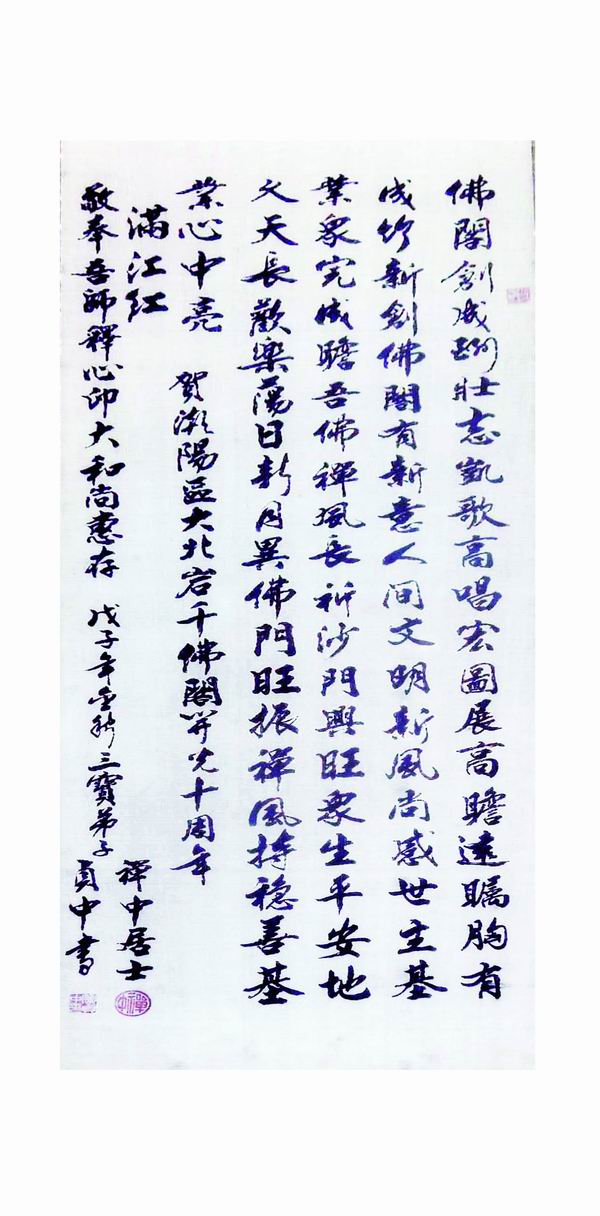 佛閣創成酬壯志凱歌高唱宏圖展高瞻遠矚胸有
成竹新創佛閣有新意人间文明新風尚感世主基
業眾完成瞻吾佛禪風長祈沙門興旺眾生平安地
久天長歡樂蕩日新月異佛門旺振禪風持穩善基
業心中亮
賀潮陽區大北岩千佛閣開光十周年
滿江紅
敬奉吾師釋心印大和尚惠存
戊子年金秋三寶弟子
禪中居士
貞中書